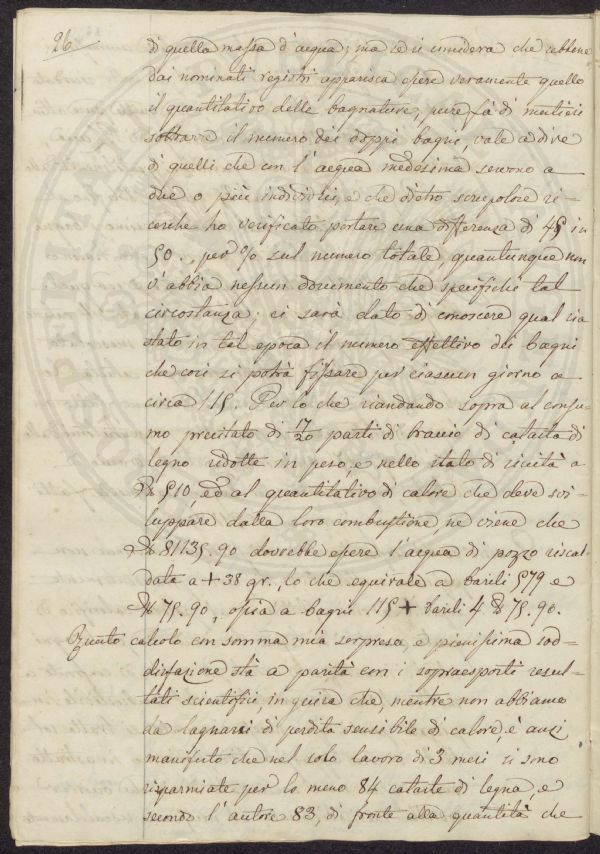 26
di quella massa d'acqua; ma se si considera che sebbene
dai nominati registri apparisca essere veramente quello
il quantitativo delle bagnature, pure fà di mestieri
sottrarre il numero dei doppi bagni, vale a dire
di quelli che con l'acqua medesima servono a
due o più individui, e che dietro scrupolose ri=
cerche ho verificato portare una differenza di 45 in
50., per % sul numero totale, quantunque non
v'abbia nessun documento che specifichi tal
circostanza; ci sarà dato di conoscere qual sia
stato in tal epoca il numero effettivo dei bagni
che così si potrà fissare per ciascun giorno a
circa 115. Per lo che riandando sopra al consu=
mo precitato di 17/20 parti di braccio di catasta di
legno ridotte in peso, e nello stato di siccità a
℔ 510, ed al quantitativo di calore che deve svi=
luppare dalla loro combustione, ne viene che
℔ 81135.90 dovrebbe essere l'acqua di pozzo riscal=
data a + 38 gr., lo che equivale a barili 579 e
℔ 75.90, ossia a bagni 115 + barili 4 ℔ 75.90.
Questo calcolo con somma mia sorpresa, e pienissima sod=
disfazione stà a parità con i sopraesposti resul=
tati scientifici, in guisa che, mentre non abbiamo
da lagnarsi di perdita sensibile di calore, è anzi
manifesto che nel solo lavoro di 3 mesi si sono
risparmiate per lo meno 84 cataste di legna, e
secondo l'autore 83, di fronte alla quantità che